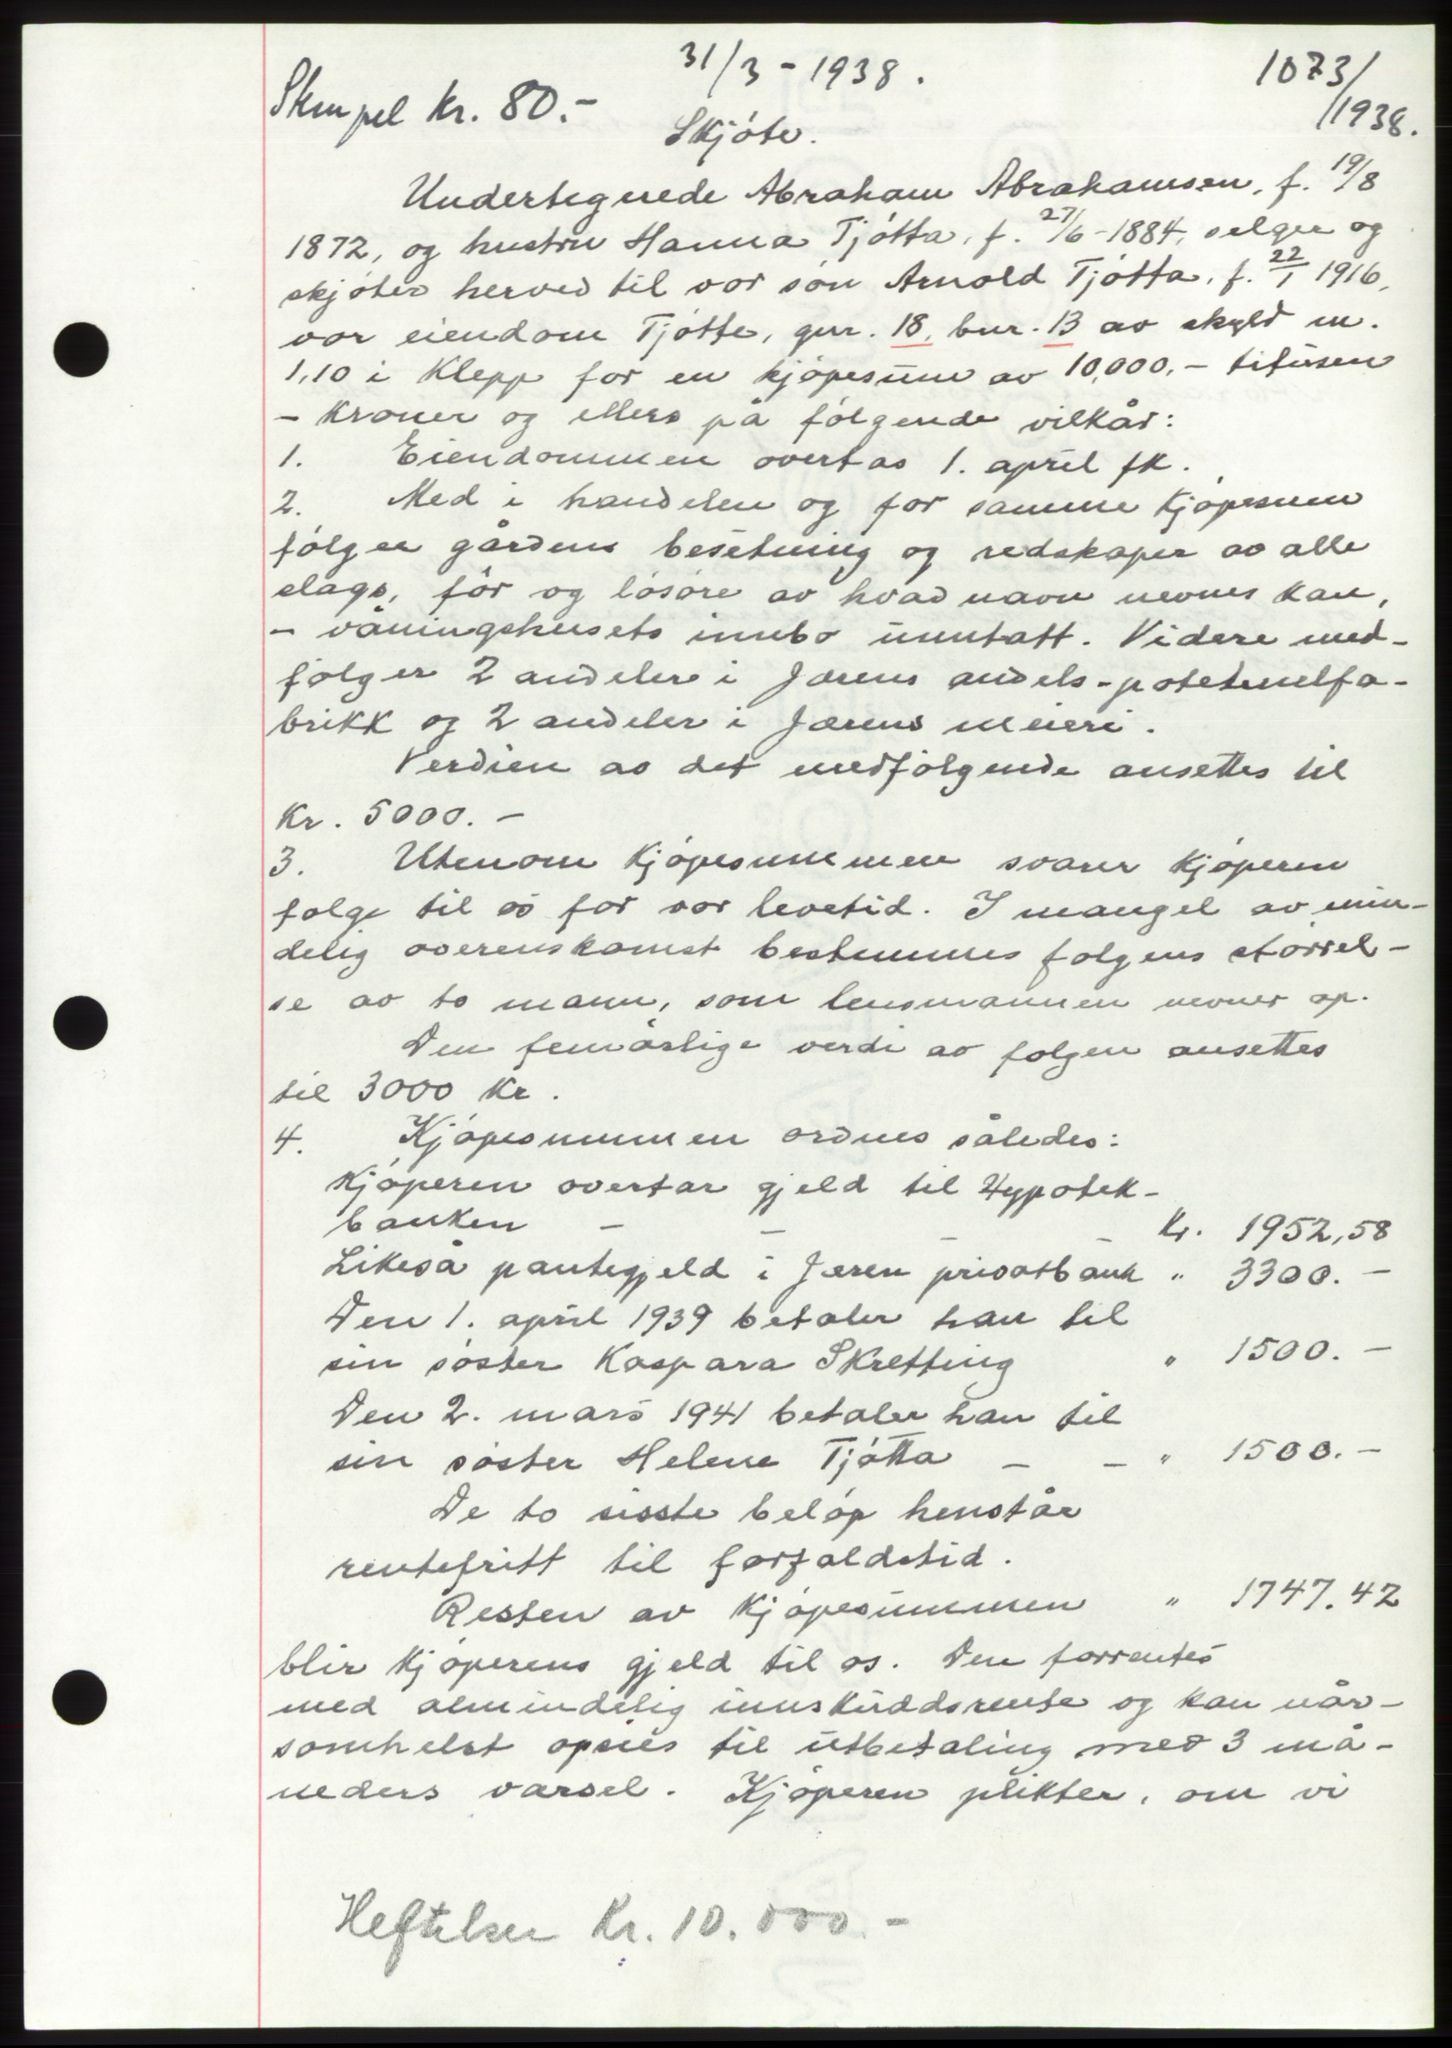 31/3 - 1938.
1073/1938.
Stempel kr. 80.-
Skjöte.
Undertegnede Abraham Abrahamsen, f. 19/8
1872, og hustru Hanna Tjötta, f. 27/6-1884, selger og
skjöter herved til vor sön Arnold Tjötta, f. 22/1 1916,
vor eiendom Tjötte, gnr. 18, bnr. 13 av skyld m.
1,10 i Klepp for en kjöpesum av 10,000.- titusen
- kroner og ellers på fölgende vilkår:
1. Eiendommen overtas 1. april fk.
2. Med i handelen og for samme kjöpesum
fölger gårdens besetning og redskaper av alle
slags, fôr og lösöre av hvad navn nevnes kan,
- våningshusets innbo unntatt. Videre med-
fölger 2 andeler i Jærens andels-potetmelfa-
brikk og 2 andeler i Jærens meieri.
Verdien av det medfölgende ansettes til
kr. 5000.-
3. Utenom kjöpesummen svarer kjöperen
folge til os for vor levetid. I mangel av min-
delig overenskomst bestemmes folgens störrel-
se av to mann, som lensmannen nevner op.
Den femårlige verdi av folgen ansettes
til 3000 kr.
4. Kjöpesummen ordnes således:
Kjöperen overtar gjeld til Hypotek-
banken - - - - Kr. 1952,58
Likeså pantegjeld i Jæren privatbank " 3300.-
Den 1. april 1939 betaler han til
sin söster Kaspara Skretting " 1500.-
Den 2. mars 1941 betaler han til
sin söster Helene Tjötta - - " 1500.-
De to sisste belöp henstår
rentefritt til forfaldstid.
Resten av kjöpesummen " 1747.42
blir kjöperens gjeld til os. Den forrentes
med almindelig innskuddsrente og kan når-
somhelst opsies til utbetaling med 3 må-
neders varsel. Kjöperen plikter, om vi
Heftelser Kr. 10.000.-